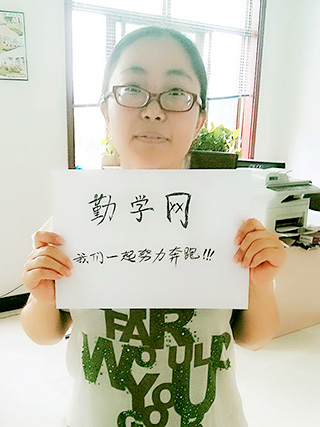 勤学网
我们一起努力奔跑!!!
FAR
WOULD
YOU
GO